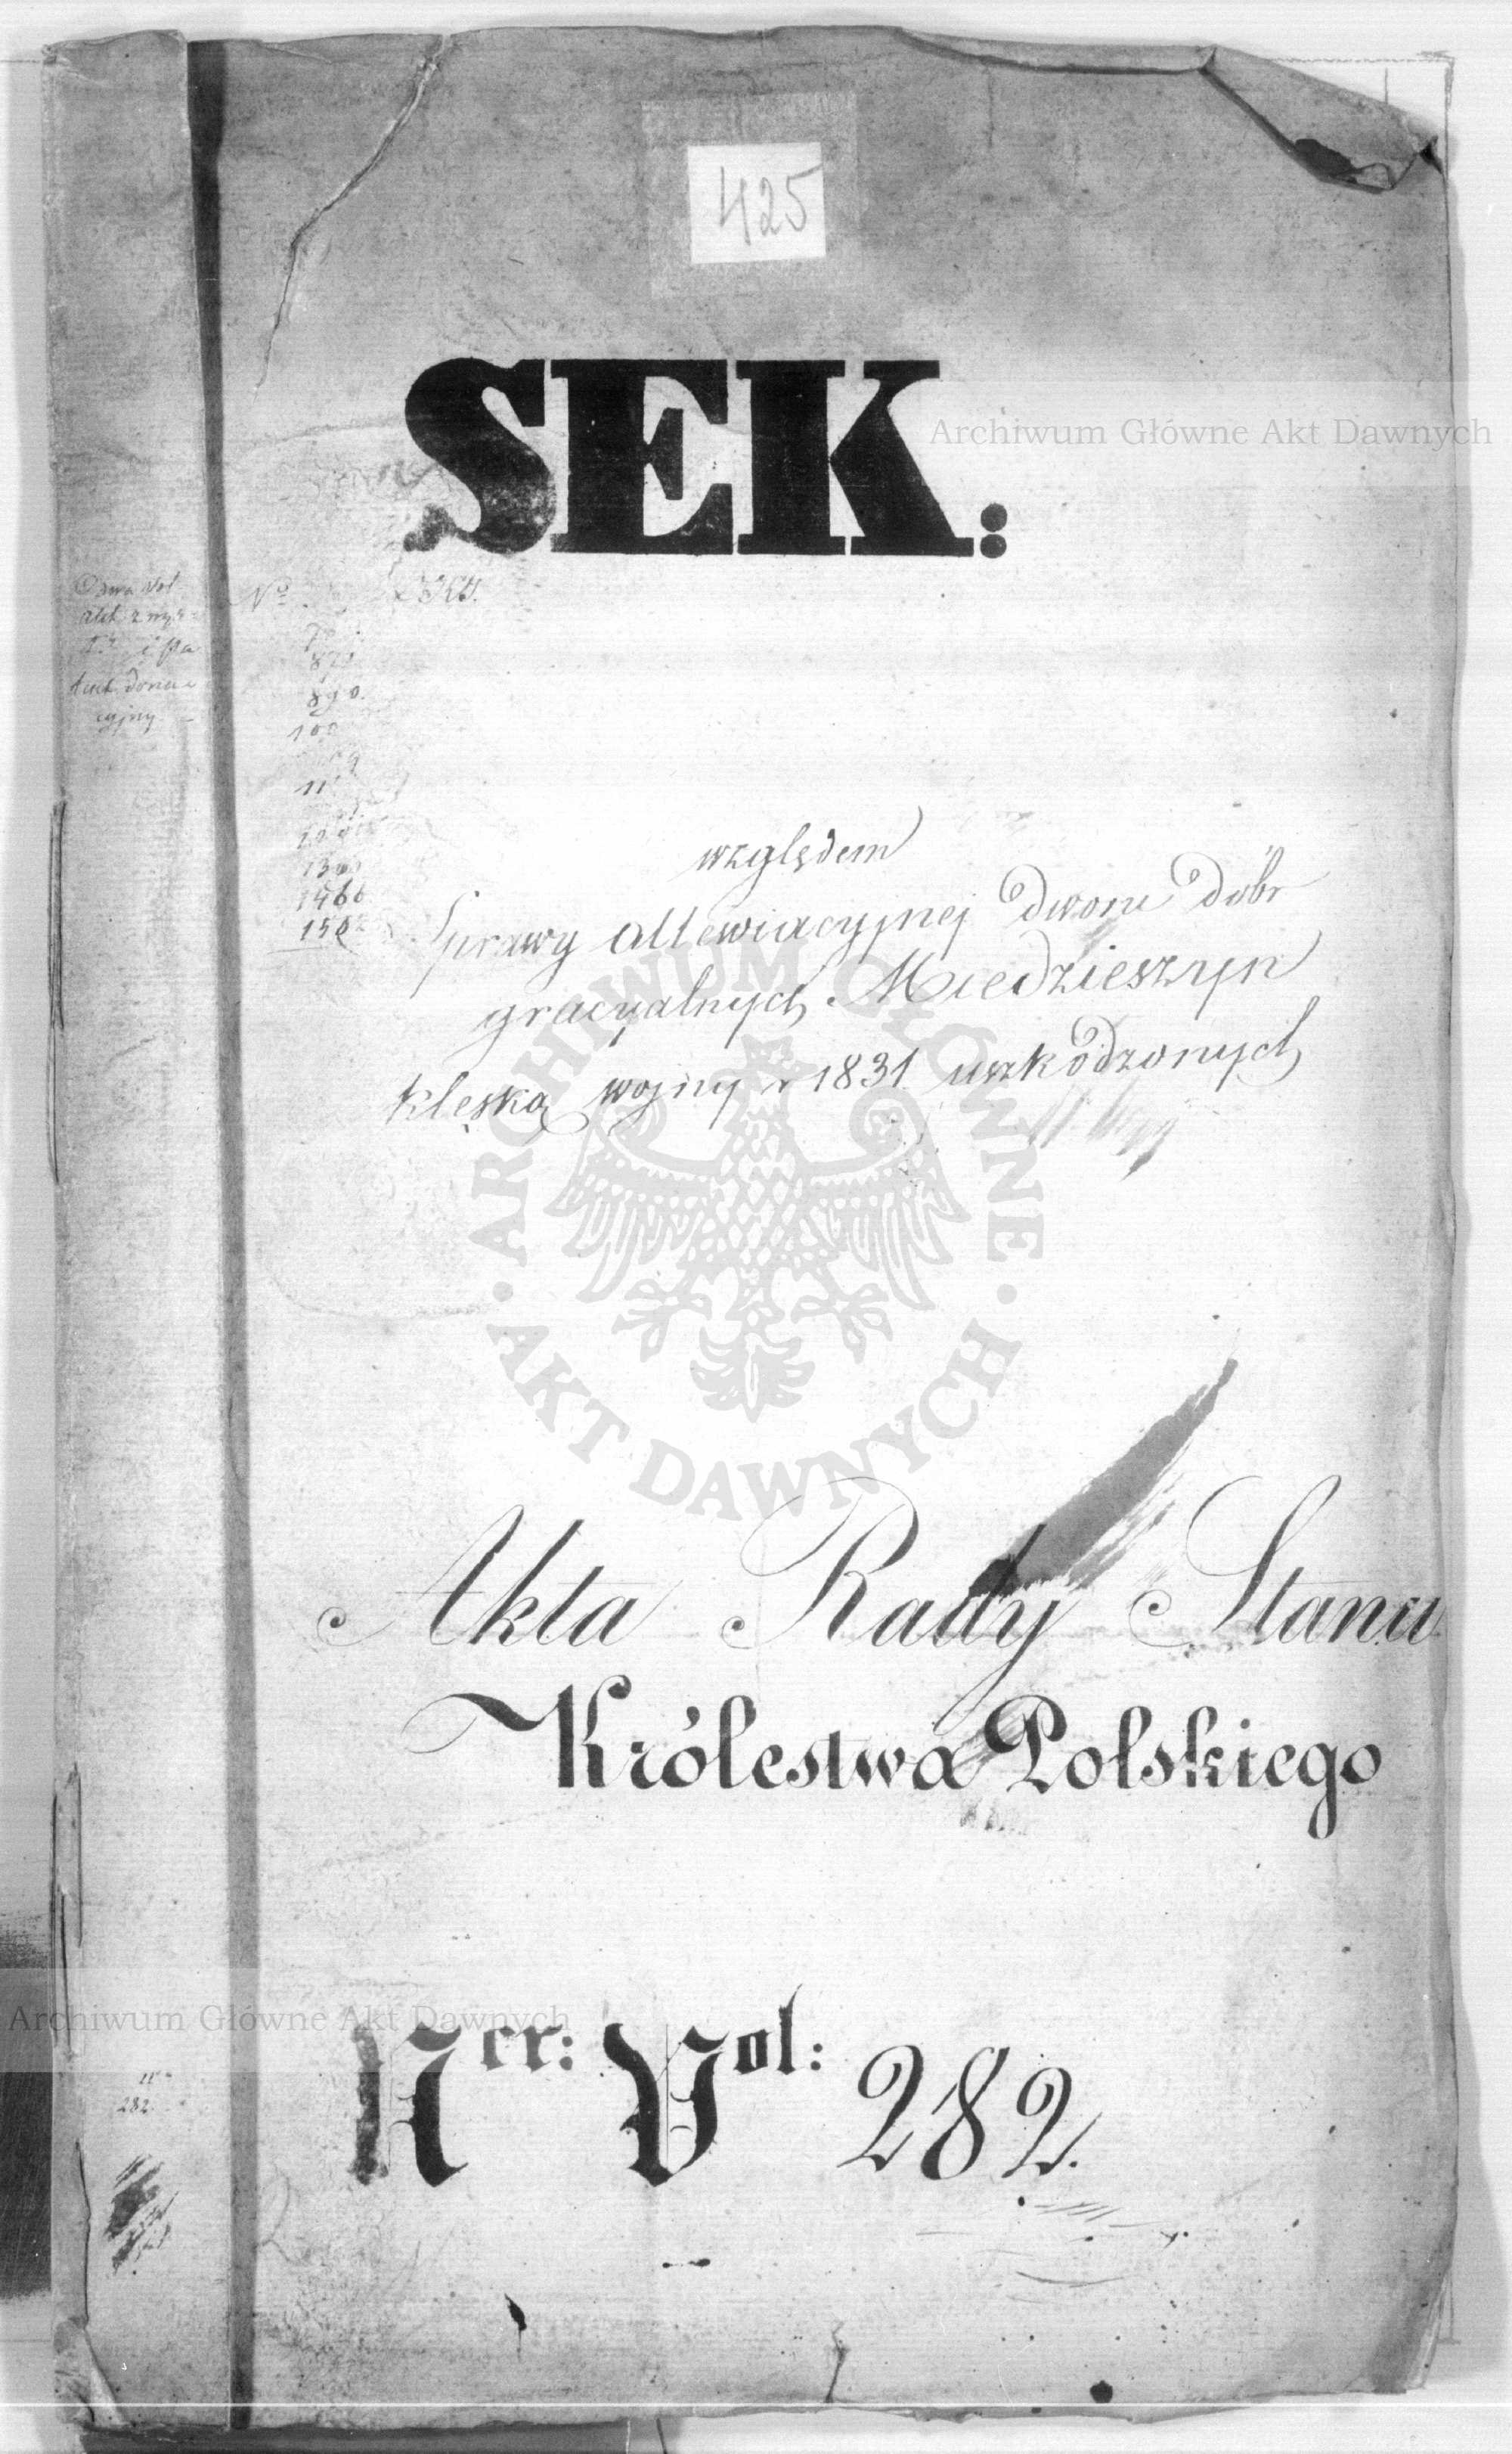 425
SEK:
Archiwum Główne Akt Dawnych
No
890.
100
1466
względem
Sprawy allewiacyjnej dworu dóbr
gracyalnych Miedzieszyn
klęską wojny r 1831 uszkodzonych
ARCHIWUM GŁÓWNE AKT DAWNYCH
Akta Rady Stanu
Królestwa Polskiego
Archiwum Główne Akt Dawnych
Ner: Vol: 282.
282